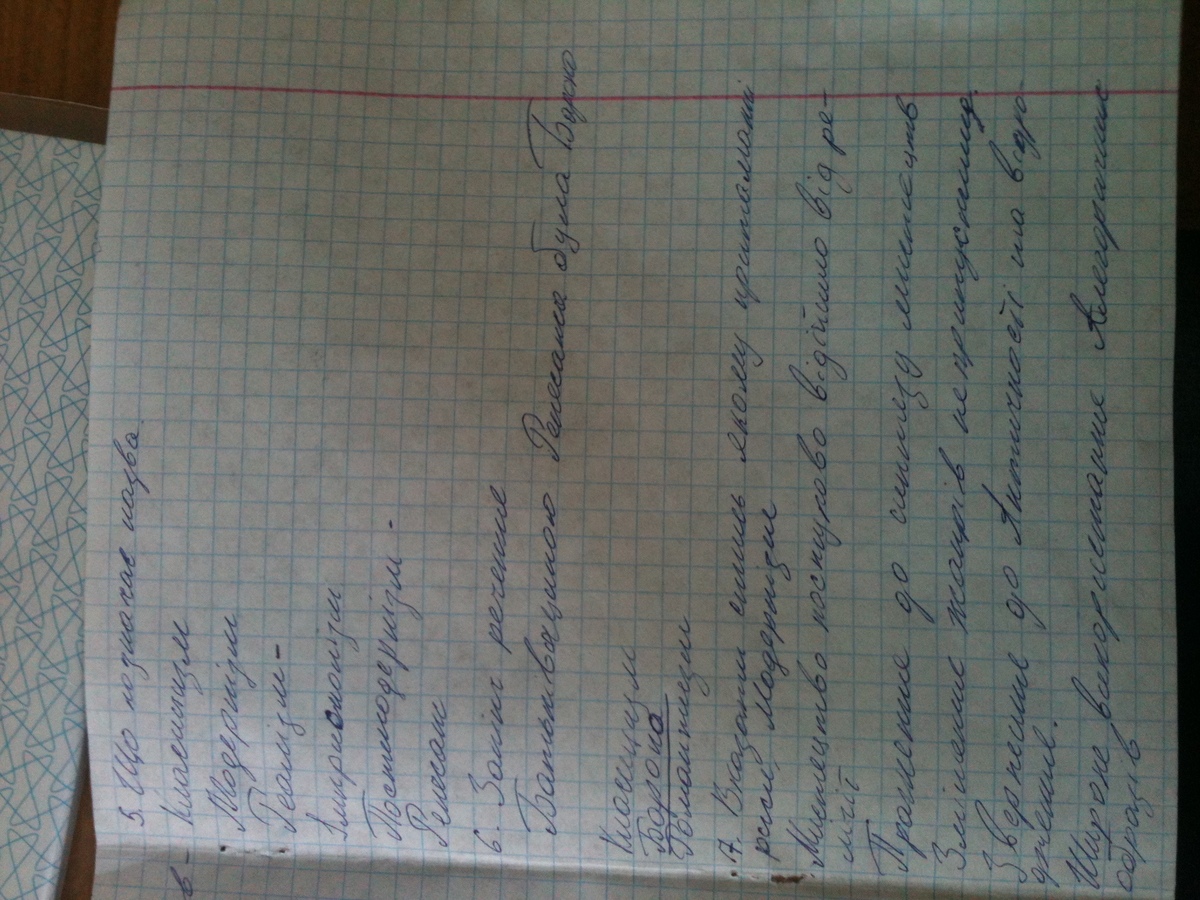 5. Що позначає назва
Класицизм
Модернізм
Реалізм -
Імприсионізм
Постмодернізм -
Ренесанс
6. Закінч речення
Батьківщиною Ренесанса була Барно
Класицизм
Барока
Романтизм
7. Вказати стиль якому притаманні
риси, Модернізм
Мистецтво поступово відійшло від ре-
лігії
Прагнення до синтезу мистецтв
Змішання жанрів неприпустимо.
Звернення до Античності та відро-
дження.
Широке використання Алегоричних
образів
в-